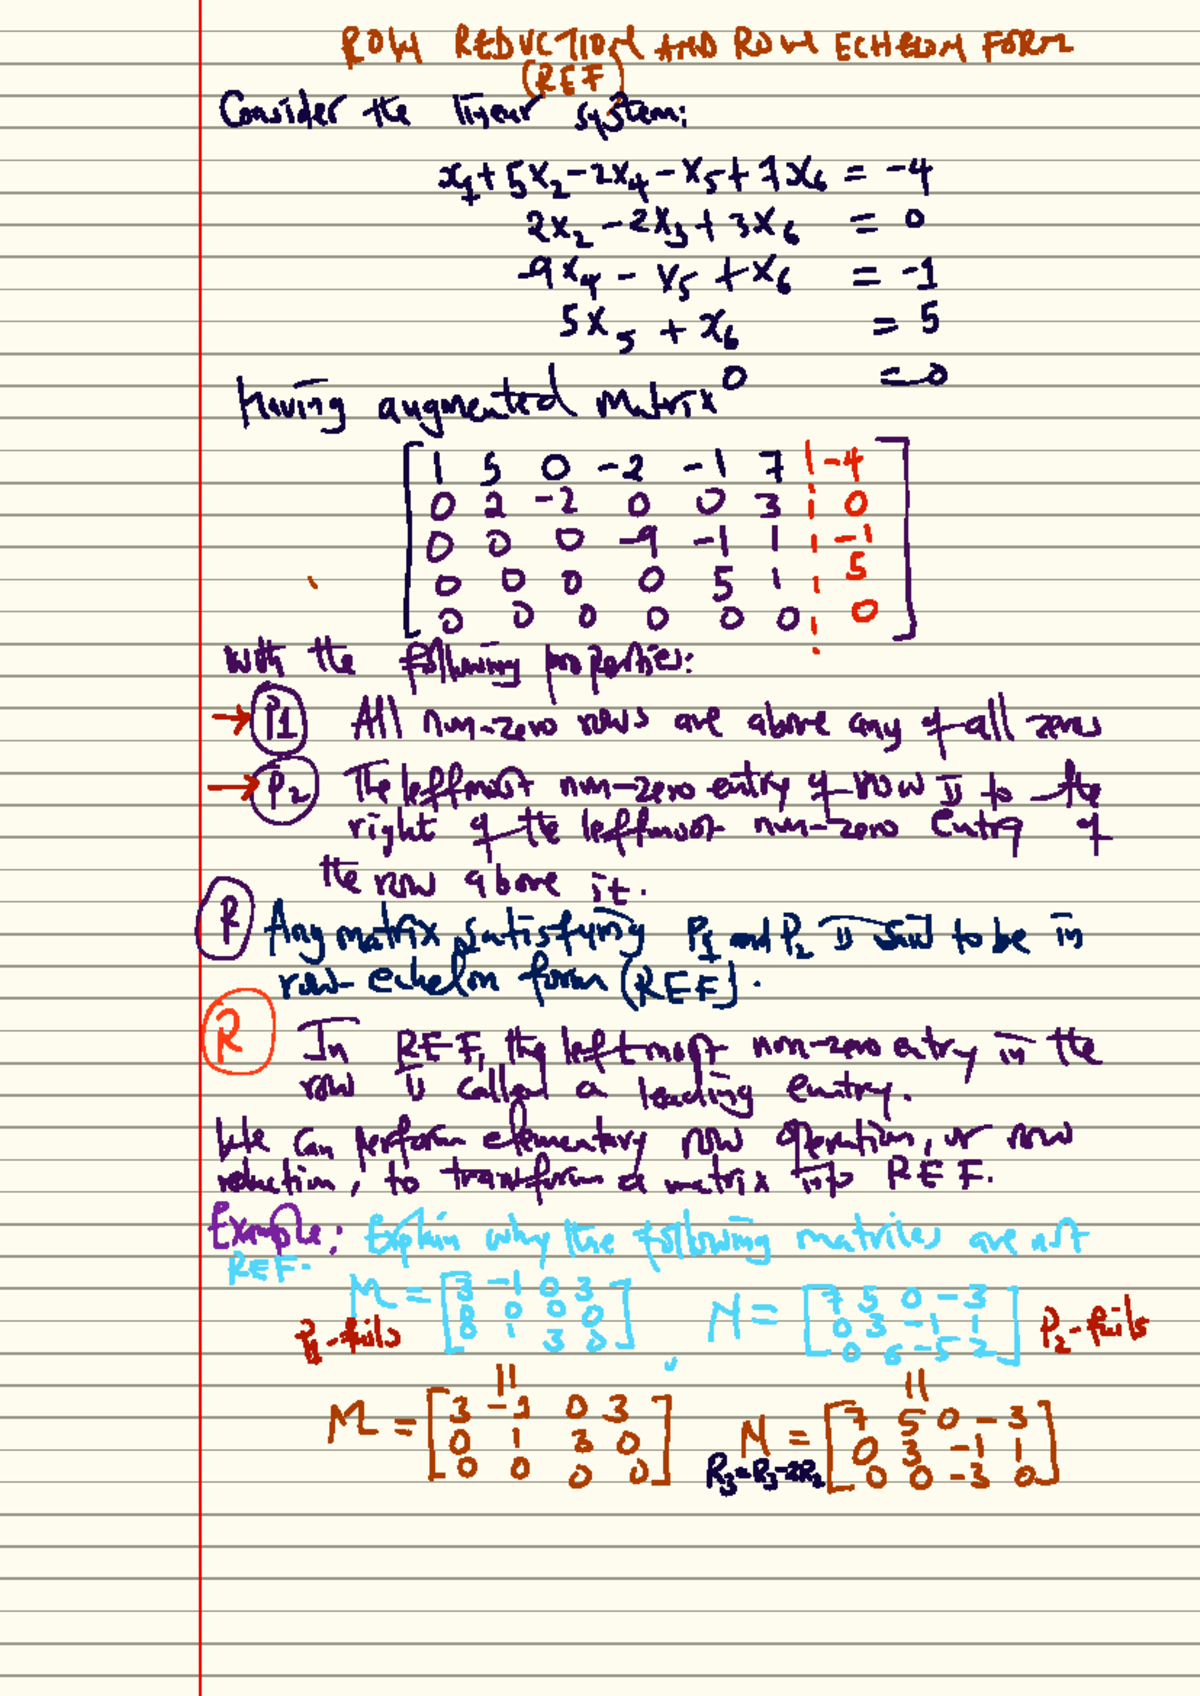 ROW REDUCTION AND ROW ECHELON FORM
(REF)
Consider the linear system:
x₁ + 5x₂ - 2x₄ - x₅ + 7x₆ = -4
2x₂ - 2x₃ + 3x₆ = 0
-9x₄ - x₅ + x₆ = -1
5x₅ + x₆ = 5
0 = 0
Having augmented matrix
1 5 0 -2 -1 7 | -4
0 2 -2 0 0 3 | 0
0 0 0 -9 -1 1 | -1
0 0 0 0 5 1 | 5
0 0 0 0 0 0 | 0
with the following properties:
→ P1 All non-zero rows are above any of all zeros
→ P2 The leftmost non-zero entry of row is to the
right of the leftmost non-zero entry of
the row above it.
R Any matrix satisfying P₁ and P₂ is said to be in
row-echelon form (REF).
R In REF, the leftmost non-zero entry in the
row is called a leading entry.
We can perform elementary row operation, or row
reduction, to transform a matrix into REF.
Example: Explain why the following matrices are not
REF.
M = [3 -1 0 3 N = [7 5 0 -3
0 0 0 0 0 3 -1 1
0 1 3 0] 0 6 -5 2]
P1-fails P2-fails
M = [3 -1 0 3 N = [7 5 0 -3
0 1 3 0 0 3 -1 1
0 0 0 0] R₃=R₃-2R₂ 0 0 -3 0]